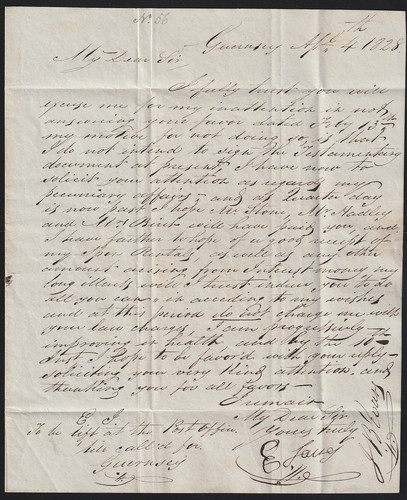 No. 56
Guernsey Ap. 4th 1828
My Dear Sir
I fully trust you will
excuse me for my inattention in not
answering your favor dated Feby 13th
my motive for not doing so, is that
I do not intend to sign the Testamentary
document at present, I have now to
solicit your attention as regards my
pecuniary affairs, and as Quarter day
is now past I hope Mr. Hone, Mr. Hadley
and Mrs Bird will have paid you and
I have further to hope of a good receipt of
my Rentals, as well as any other
amount arising from Interest money my
long illness will I trust induce you to do
all you can in acceding to my wishes
and at this period do not charge me with
your law charge, I am progressively
improving in health, and by the 10th
Inst I hope to be favor'd with your reply
soliciting your very kind attention and
thanking you for all favors
I remain
My Dear Sir
Yours truly
E. J.
To be left at the Post Office
till call'd for
Guernsey